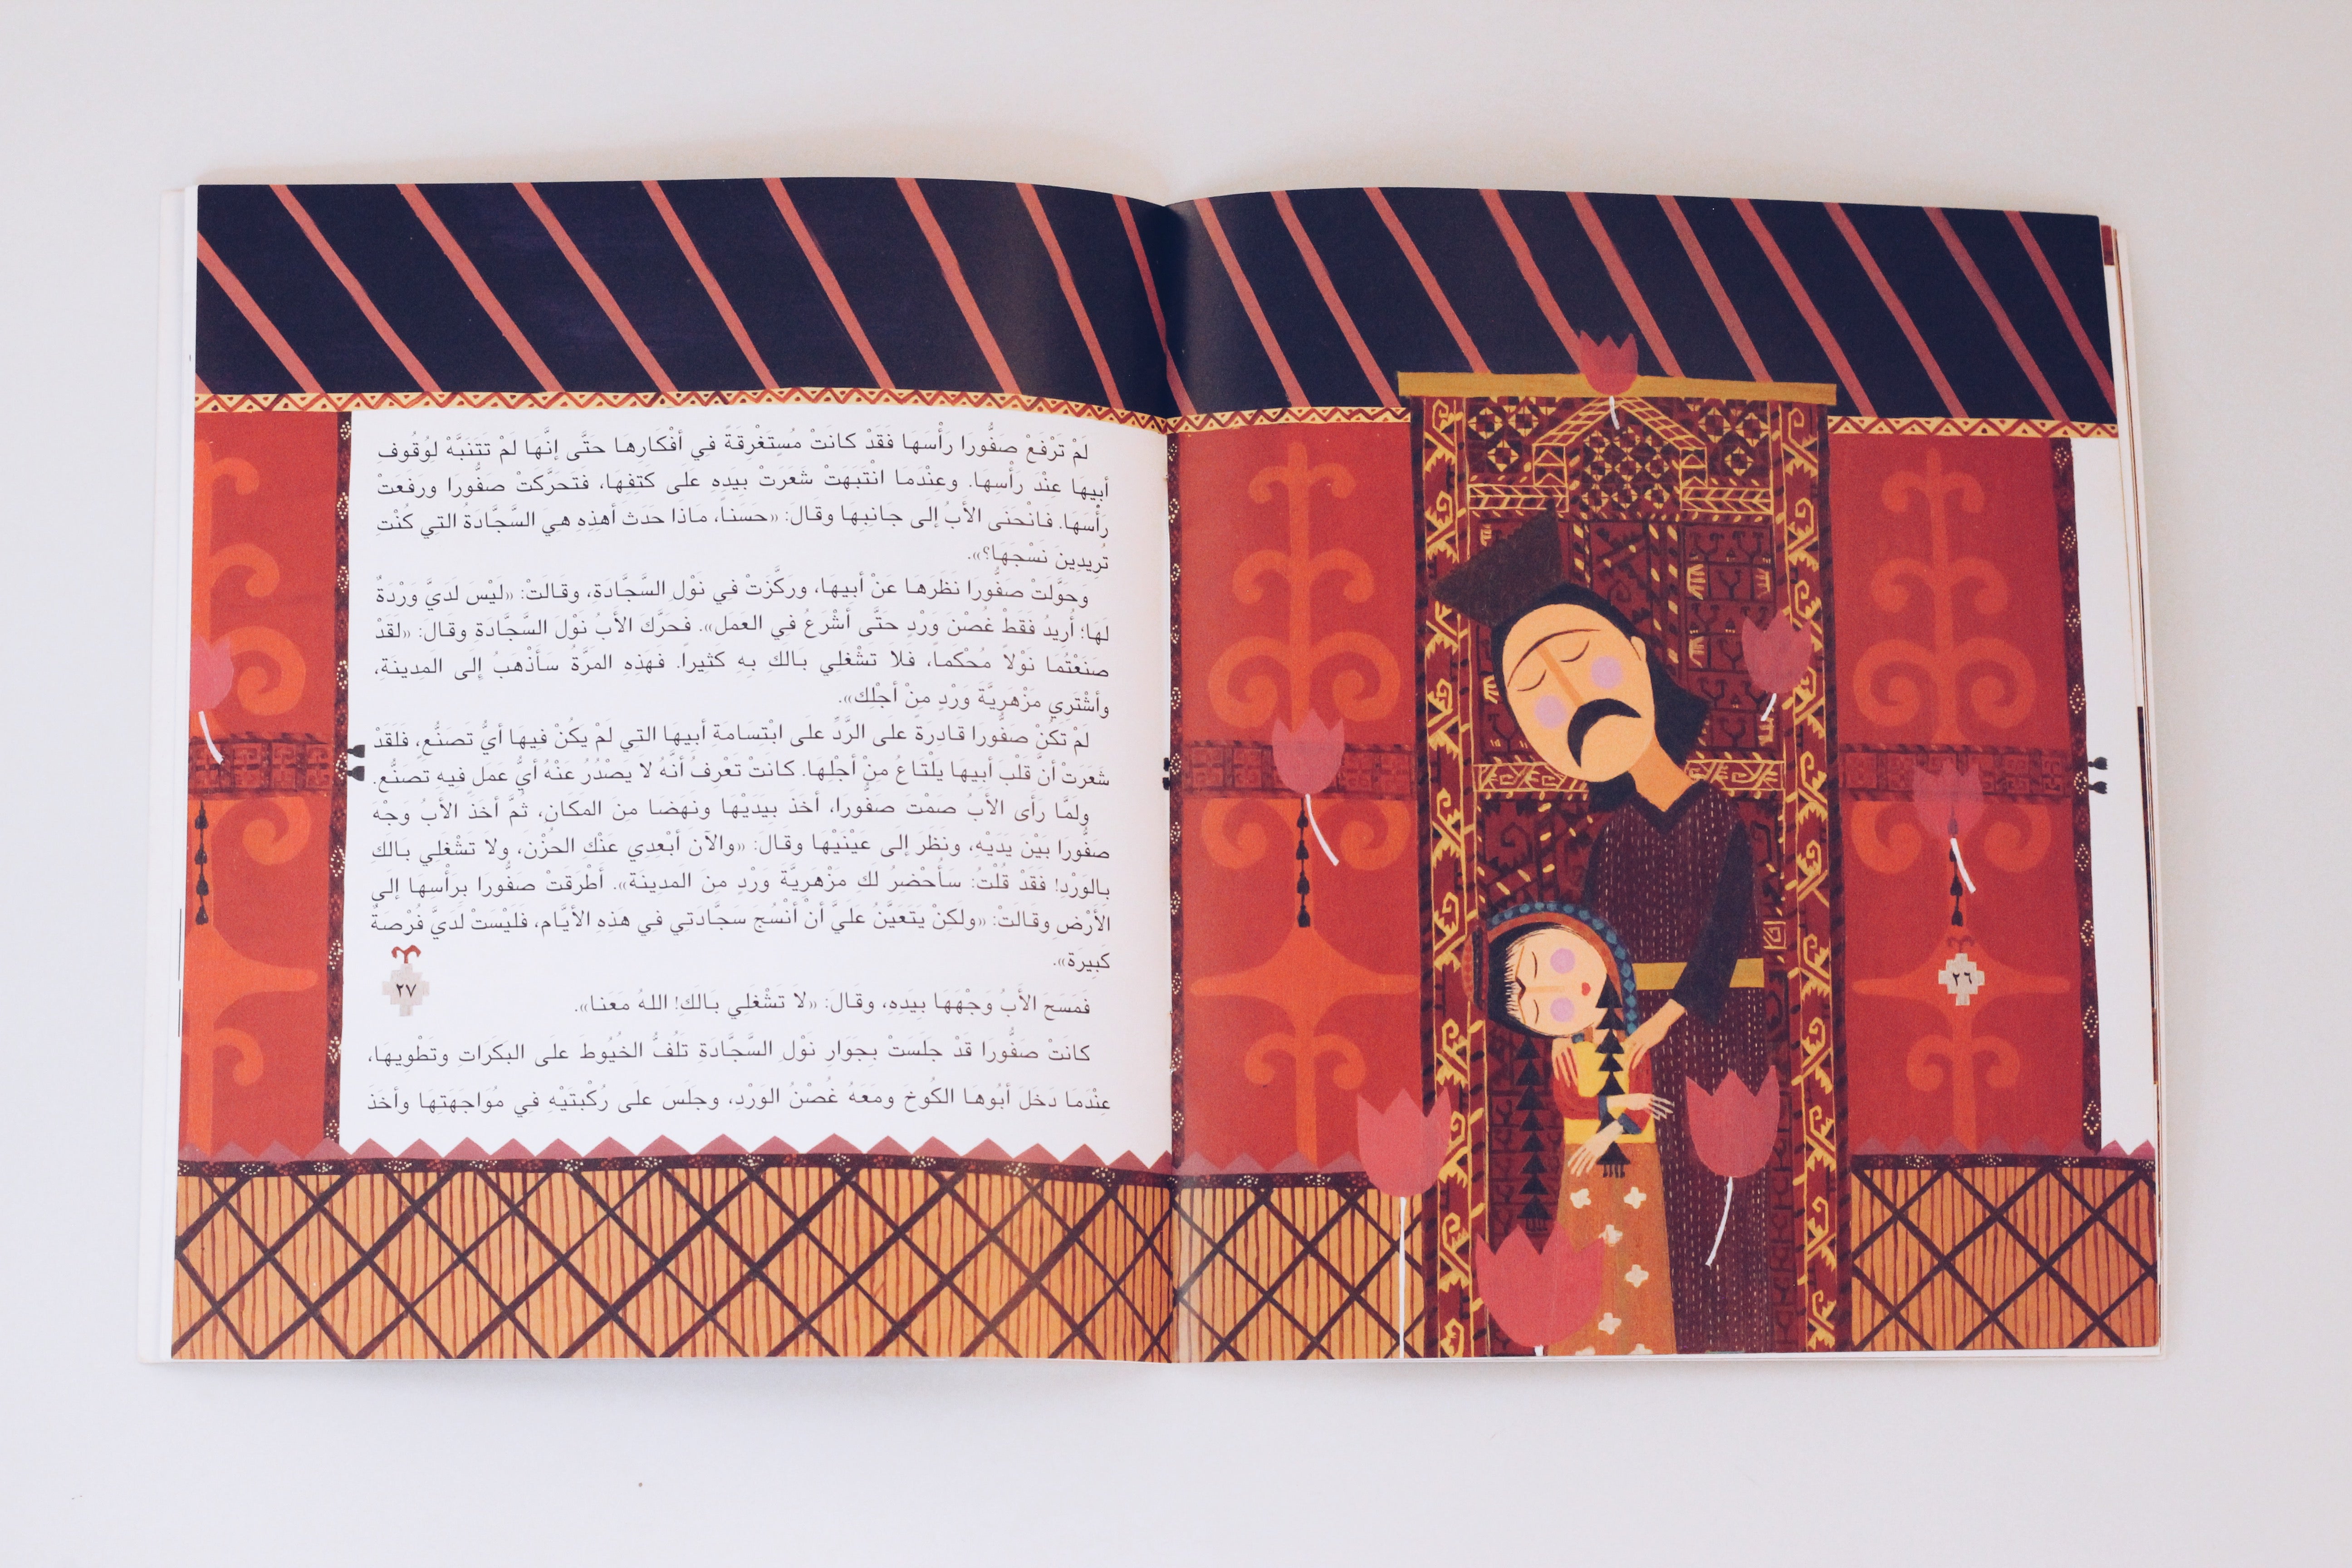 ٢٦
لَمْ تَرْفَعْ صفُّورا رَأْسَهَا فَقَدْ كانَتْ مُستَغْرِقَةً في أفْكَارهـا حتَّى إنَّهَا لَمْ تَتَنبَّهْ لوُقُوف
أبيهَا عِنْدَ رَأْسِهَا. وعِنْدَما انْتبَهَتْ شَعَرَتْ بيَدِهِ على كتفِهَا، فَتَحَرَّكَتْ صفُّورا ورفَعتْ
رَأْسَهَا. فَانْحنَى الأبُ إلى جانِبِهَا وقَال: «حَسَناً، مَاذا حَدَث أهذِهِ هيَ السَّجَّادَةُ التي كُنْتِ
تُرِيدِينَ نَسْجَهَا؟».
وحَوَّلَتْ صفُّورا نظَرَهـا عنْ أبيهَا، ورَكَّزَتْ في نَوْل السَّجَّادَةِ، وقَالَتْ: «ليْسَ لَديَّ وَرْدَةٌ
لَهَا؛ أُرِيدُ فَقَطْ غُصْنَ وَرْدٍ حتَّى أشْرَعُ في العَمَل». فَحَرَّك الأبُ نوْلَ السَّجَّادَةِ وقالَ: «لقَدْ
صنَعْتُما نوْلاً مُحْكَما، فلا تشْغلي بَالك بِهِ كَثيراً. فَهَذِهِ المرَّةُ سَأذْهَبُ إلى المدِينَةِ،
وأشْتَرِي مَزْهريَّةَ وَرْدٍ منْ أجْلِكِ».
لمْ تكُنْ صفُّورا قادِرَةً على الرَّدِّ على ابْتِسامَةِ أبيهَا التي لَمْ يكُنْ فيهَا أيُّ تَصنُّعٍ، فَلَقَدْ
شَعرَتْ أنَّ قلْبَ أبيهَا يلْتَاعُ منْ أجْلِها. كانتْ تَعْرِفُ أنَّهُ لا يَصْدُرُ عنْهُ أيُّ عمَلٍ فيهِ تصنُّع.
ولمَّا رَأى الأبُ صَمْت صفُّورا، أخَذَ بيَدَيْهَا ونَهضَا من المكَان، ثمَّ أخذ الأبُ وَجْهَ
صفُّورا بيْنَ يَدَيْهِ، ونظَرَ إلى عيْنَيْهَا وقالَ: «والآن أبْعدِي عنْكِ الحُزْنَ، ولا تَشْغلي بالك
بالوَرْدِ! فقَدْ قُلْتُ: سَأُحْضرُ لكِ مَزْهريَّةَ وَرْدٍ من المدينة». أطْرقَتْ صفُّورا برَأْسِهَا إلى
الأَرْضِ وقَالَتْ: «ولكِنْ يتَعَيَّنُ علَيَّ أنْ أنْسُج سَجَّادَتي في هَذِهِ الأيَّامِ، فَليْسَتْ لديَّ فُرْصَةٌ
كَبيرَة».
فَمَسَحَ الأبُ وَجْهَهَا بيَدِهِ، وقَالَ: «لا تَشْغَلي بَالَكِ! اللهُ مَعَنا».
كانَتْ صَفُّورا قدْ جلَستْ بِجَوارِ نوْل السَّجَّادَةِ تَلُفُّ الخيُوطَ على البَكرَاتِ وتَطْوِيهَا،
عنْدَما دَخلَ أبُوهَا الكُوخَ ومعَهُ غُصْنُ الوَرْدِ، وجلَسَ على رُكْبَتَيْهِ في مُوَاجهَتِهَا وأخَذَ
٢٧